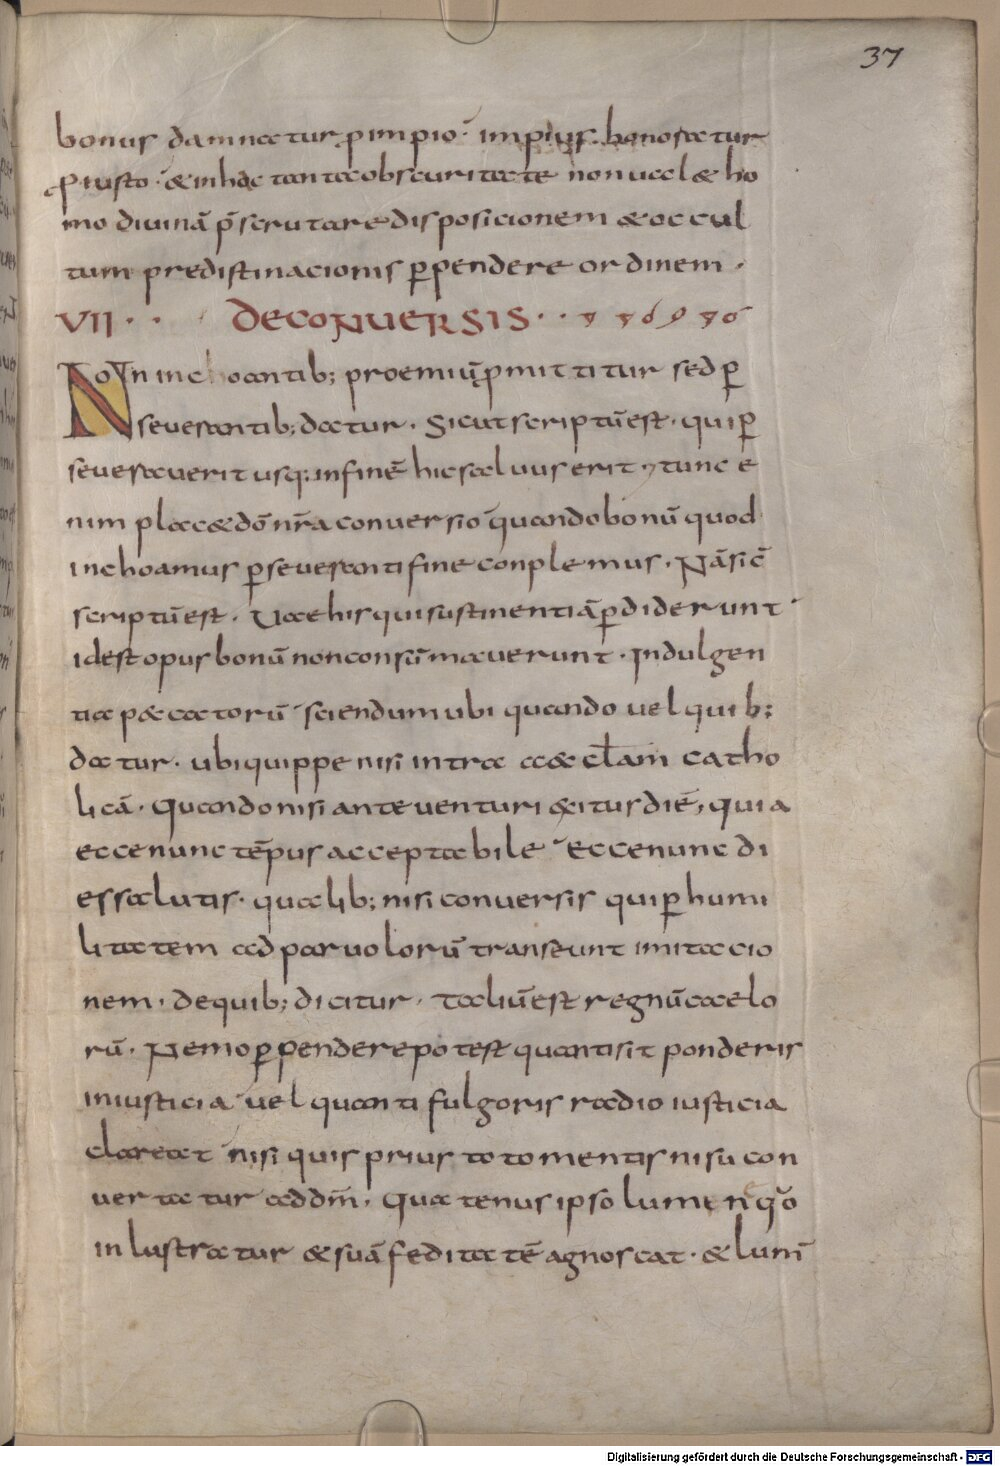 37
bonus damnatur ꝓ impio · impius honoratur
ꝓ iusto · & in hac tanta obscuritate non ual& ho
mo diuinā p̄scrutare disposicionem & occul
tum predistinacionis ꝑpendere ordinem ·
VII · · DE CONUERSIS · ·
Non inchoantib; proemiū ꝓmittitur sed ꝑ
seuerantib; datur · Sicut scriptū est · qui ꝑ
seuerauerit usq; in finē hic saluus erit tunc e
nim plac& dō nr̄a conuersio quando bonū quod
inchoamus ꝑseueranti fine conplemus · Nā sic̄
scriptū est · Uae his qui sustinentiā ꝑdiderunt
id est opus bonū non consūmauerunt · Indulgen
tia p&catorū sciendum ubi quando uel quib;
datur · ubi quippe nisi intra a&cl̄am catho
licā · Quando nisi ante uenturi exitus diē, quia
ecce nunc tēpus acceptabile Ecce nunc di
es salutis · qualib; nisi conuersis qui ꝑ humi
litatem ad paruolorū transeunt imitacio
nem · de quib; dicitur · taliū est regnū caelo
rū · Nemo ꝑpendere potest quanti sit ponderis
iniusticia uel quanti fulgoris radio iusticia
clareat nisi quis prius toto mentis nisu con
uertatur ad dm̄ · Quatenus ipso lumen quo
inlustratur & suā feditatē agnoscat · & lumī
Digitalisierung gefördert durch die Deutsche Forschungsgemeinschaft - DFG